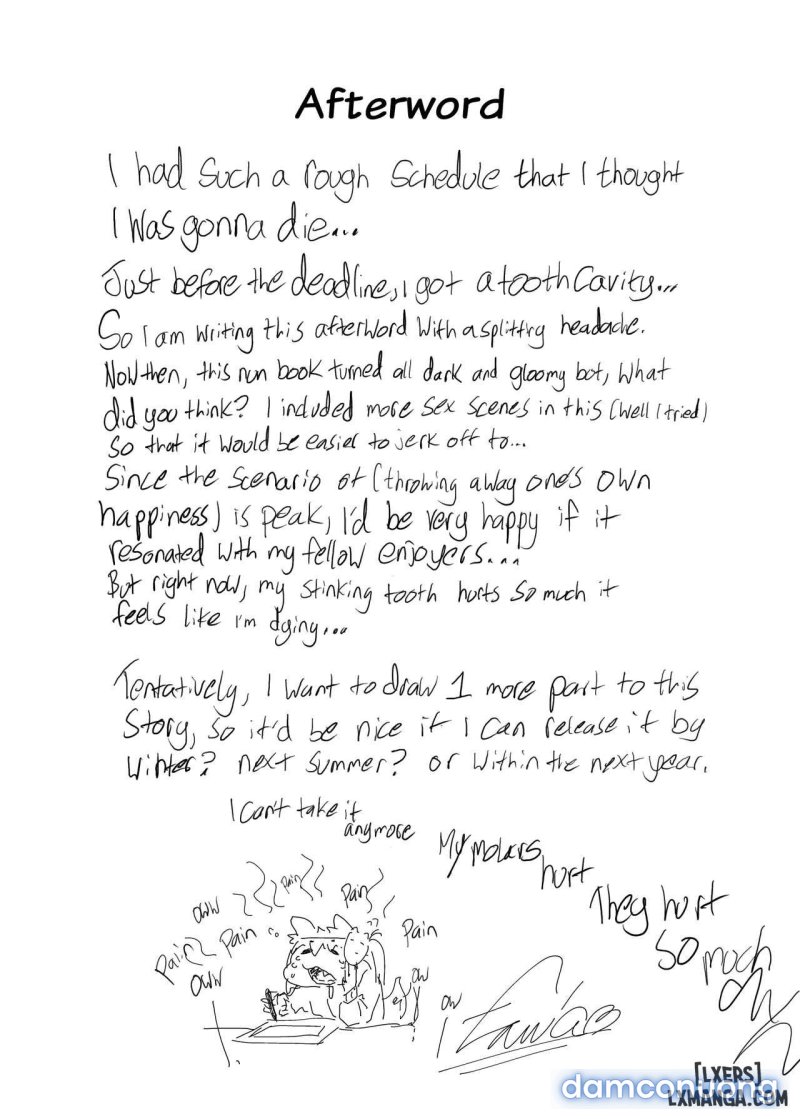 Afterword
I had such a rough schedule that I thought
I was gonna die...
Just before the deadline, I got a tooth cavity...
So I am writing this afterword with a splitting headache.
Now then, this run book turned all dark and gloomy bot, what
did you think? I included more sex scenes in this (well I tried)
so that it would be easier to jerk off to...
Since the scenario of (throwing away one's own
happiness) is peak, I'd be very happy if it
resonated with my fellow enjoyers...
But right now, my stinking tooth hurts so much it
feels like I'm dying...
Tentatively, I want to draw 1 more part to this
story, so it'd be nice if I can release it by
winter? next summer? or within the next year.
I can't take it
anymore
My molars
hurt
They hurt
so much
OW
Pain
Pain
OWW
Pain
Pain
Pain
OWW
OW
OW
[LXERS]
damconuong
LXMANGA.COM